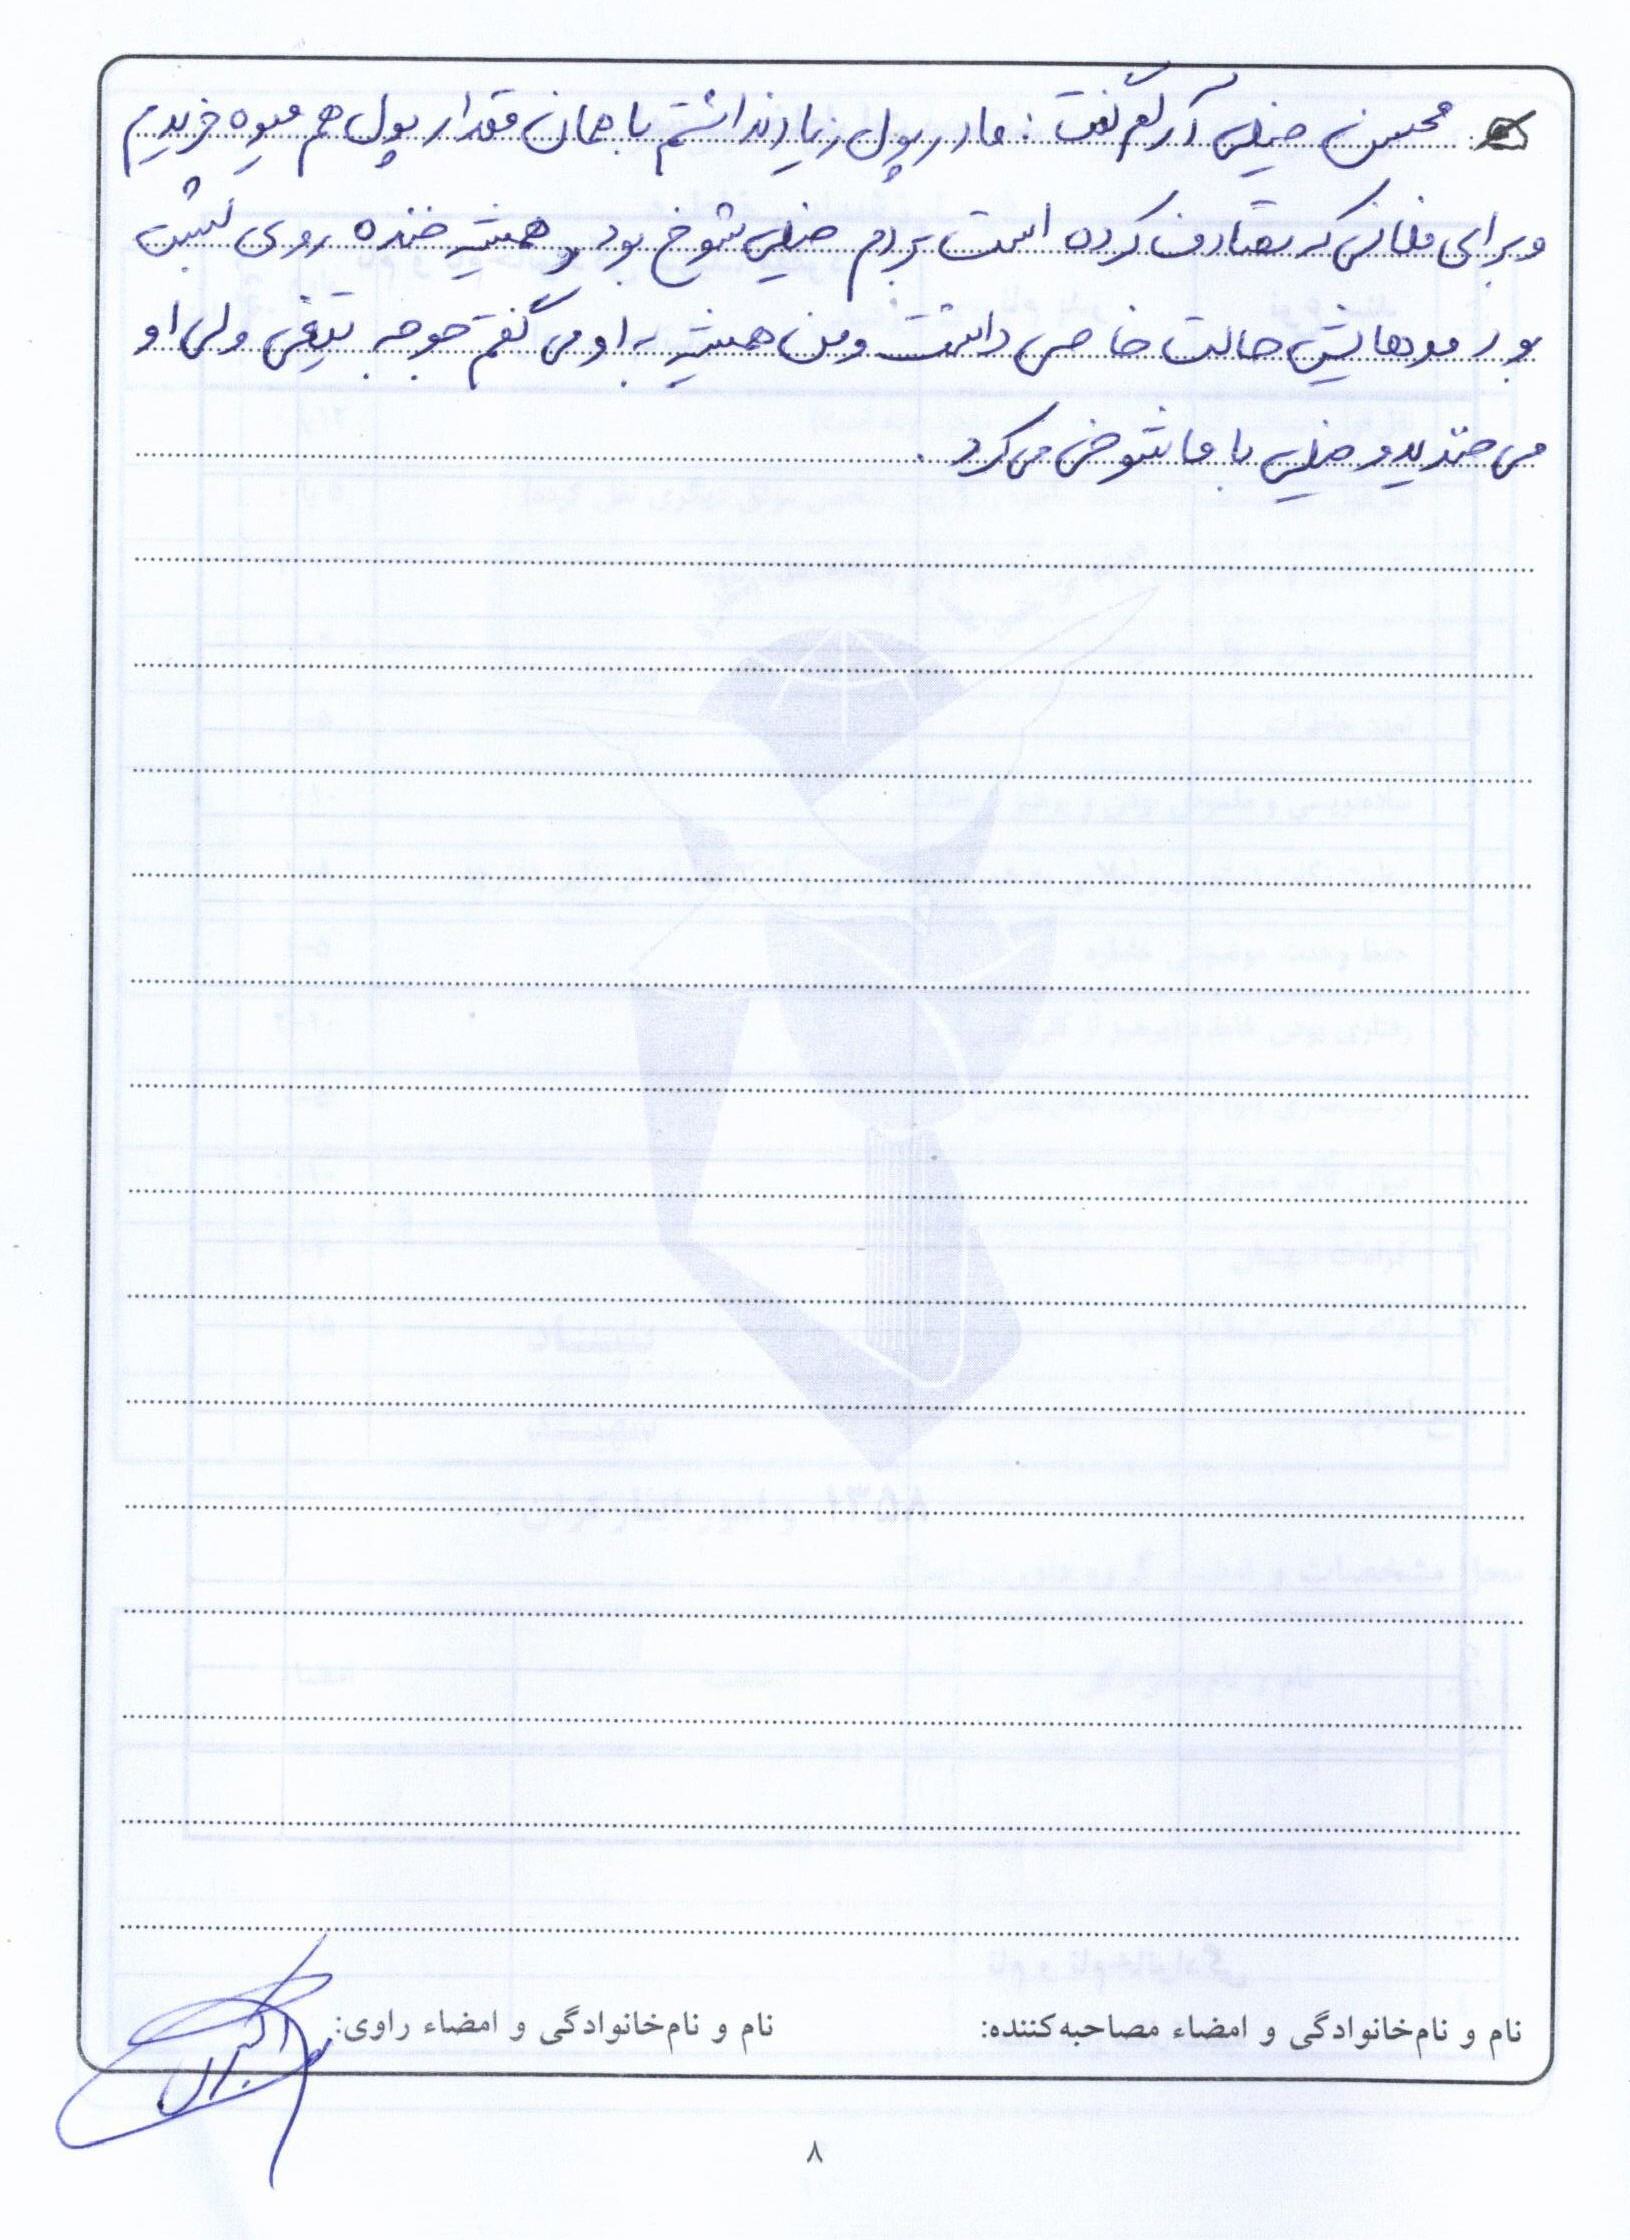 محسن خیلی آرام گفت: مادر پول زیاد نداشتم با همان مقدار پول هم میوه خریدم
و برای فلانی که تصادف کرده است بردم خیلی شوخ بود و همیشه خنده روی لبش
بود موهایش حالت خاصی داشت و من همیشه به او می گفتم جوجه تیغی ولی او
می خندید و خیلی با ما شوخی می کرد.
نام و نام‌خانوادگی و امضاء مصاحبه‌کننده:
نام و نام‌خانوادگی و امضاء راوی:
۸